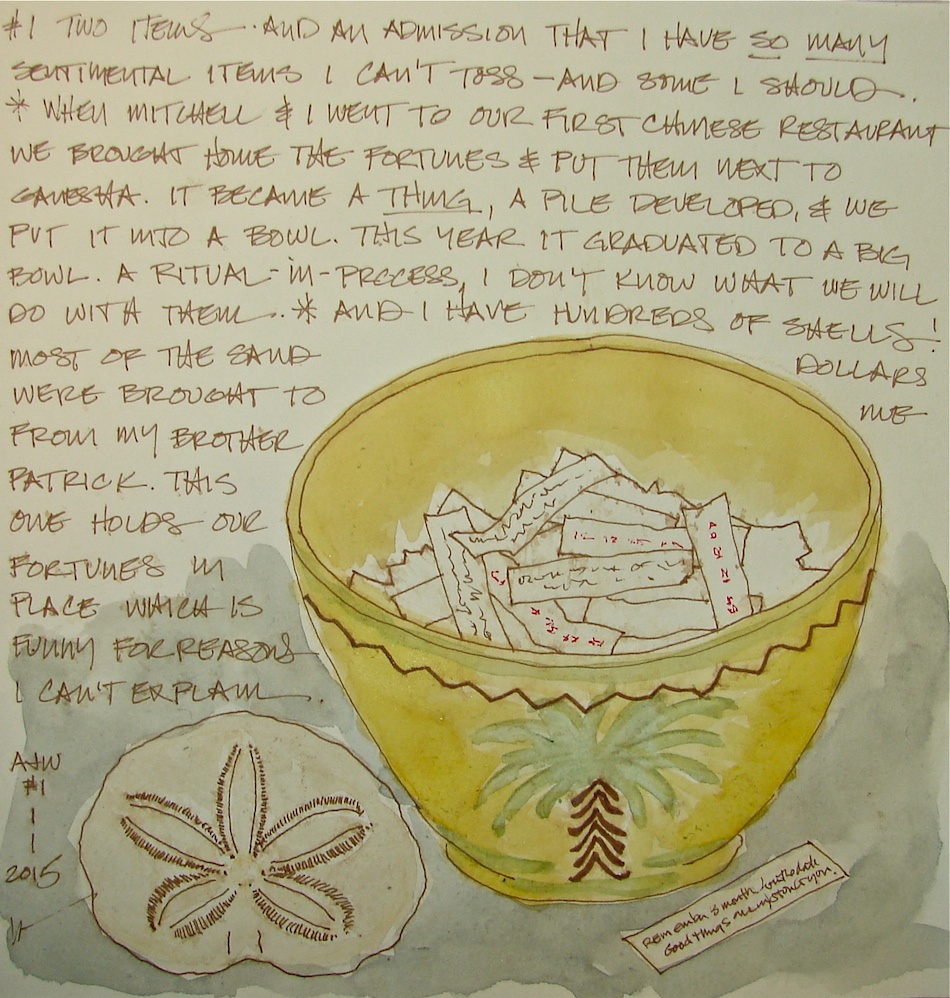 #1 TWO ITEMS - AND AN ADMISSION THAT I HAVE SO MANY
SENTIMENTAL ITEMS I CAN'T TOSS - AND SOME I SHOULD.
* WHEN MITCHELL & I WENT TO OUR FIRST CHINESE RESTAURANT
WE BROUGHT HOME THE FORTUNES & PUT THEM NEXT TO
GANESHA. IT BECAME A THING, A PILE DEVELOPED, & WE
PUT IT INTO A BOWL. THIS YEAR IT GRADUATED TO A BIG
BOWL. A RITUAL-IN-PROCESS, I DON'T KNOW WHAT WE WILL
DO WITH THEM.. * AND I HAVE HUNDREDS OF SHELLS!
MOST OF THE SAND DOLLARS
WERE BROUGHT TO ME
FROM MY BROTHER
PATRICK. THIS
ONE HOLDS OUR
FORTUNES IN
PLACE WHICH IS
FUNNY FOR REASONS
I CAN'T EXPLAIN.
AJW
#1
1
1
2015
Remember 3 months from this date
Good things are in store for you.